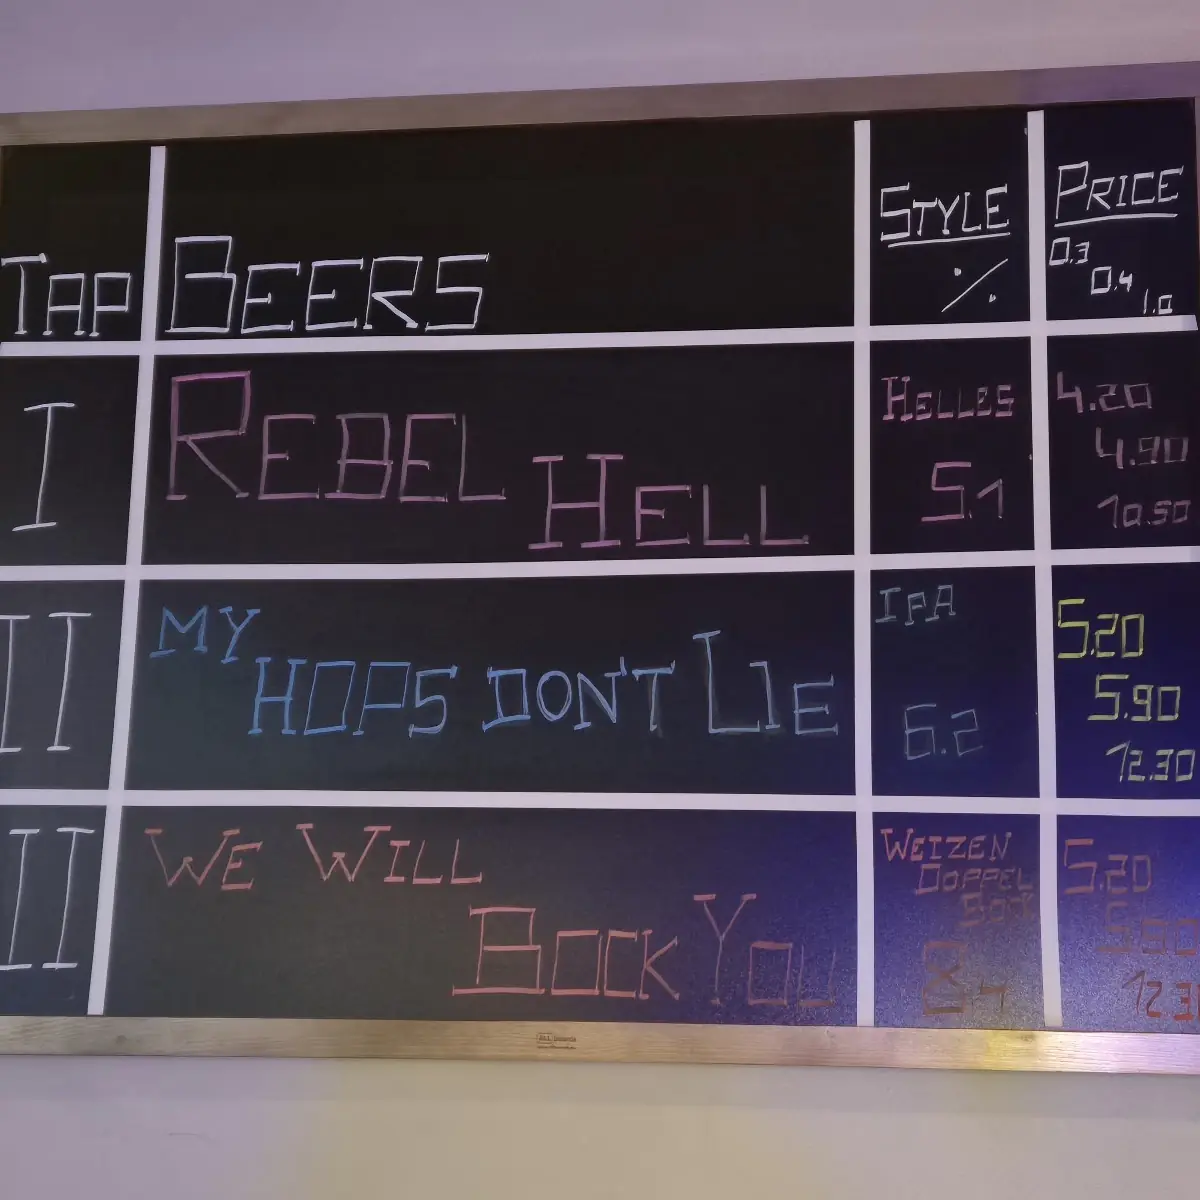 TAP BEERS STYLE PRICE
% 0.3
0.4
1.0
I REBEL HELL HELLES 4.20
5.1 4.90
10.50
II MY HOPS DON'T LIE IPA 5.20
6.2 5.90
12.30
II WE WILL WEIZEN 5.20
BOCK YOU DOPPEL 5.90
BOCK
8.4 12.3